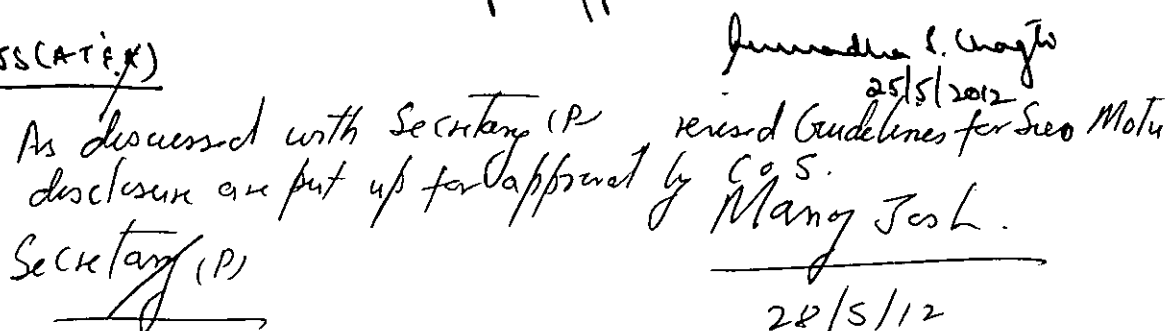 JS(AT&A)
Anuradha S. Chagti
25/5/2012
As discussed with Secretary (P) revised Guidelines for Suo Motu
disclosure are put up for approval by CoS.
Manoj Joshi.
Secretary (P)
28/5/12